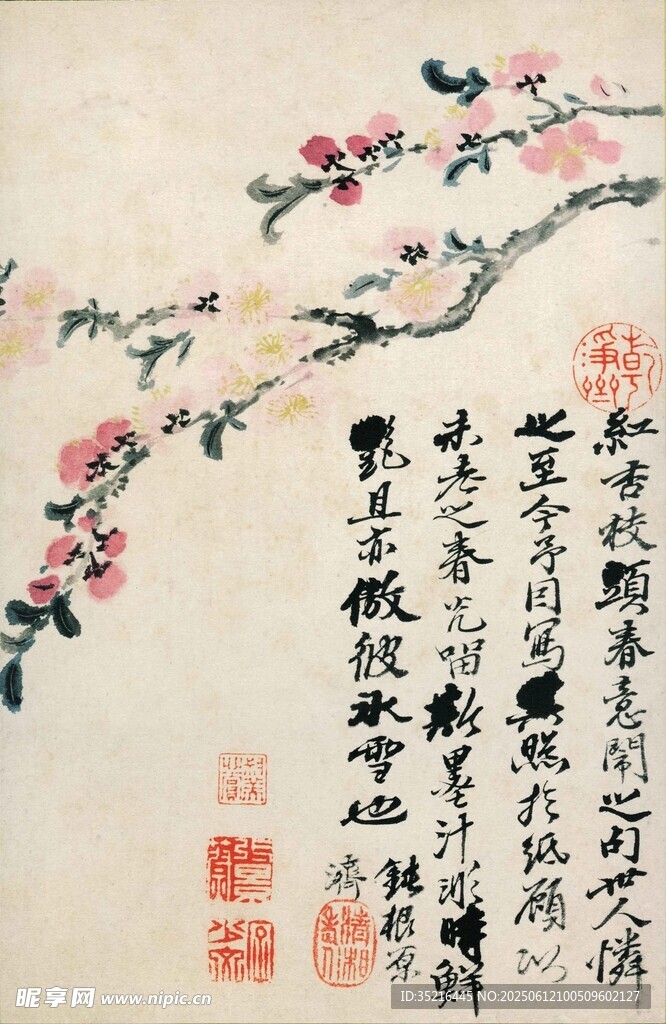 红杏枝頭春意鬧之句世人憐
之至今予因寫其照於紙顧以
未老之春光留斯墨汁澎時鮮
艷且亦傲彼冰雪也
鈍根原
濟
昵享网 www.nipic.cn
ID:35216445 NO:20250612100509602127